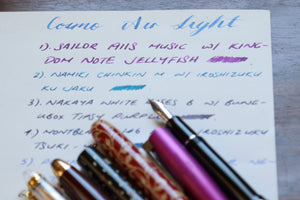 Cosmo Air Light
1). SAILOR 1911S MUSIC W/ KING-
DOM NOTE JELLYFISH
2). NAMIKI CHINKIN M W/ IROSHIZUKU
KUJAKU
3). NAKAYA WHITE B W/ BUNGU-
BOX TIPSY PURPLE
4) MONTBLANC 146 IROSHIZUKU
TSUKI-